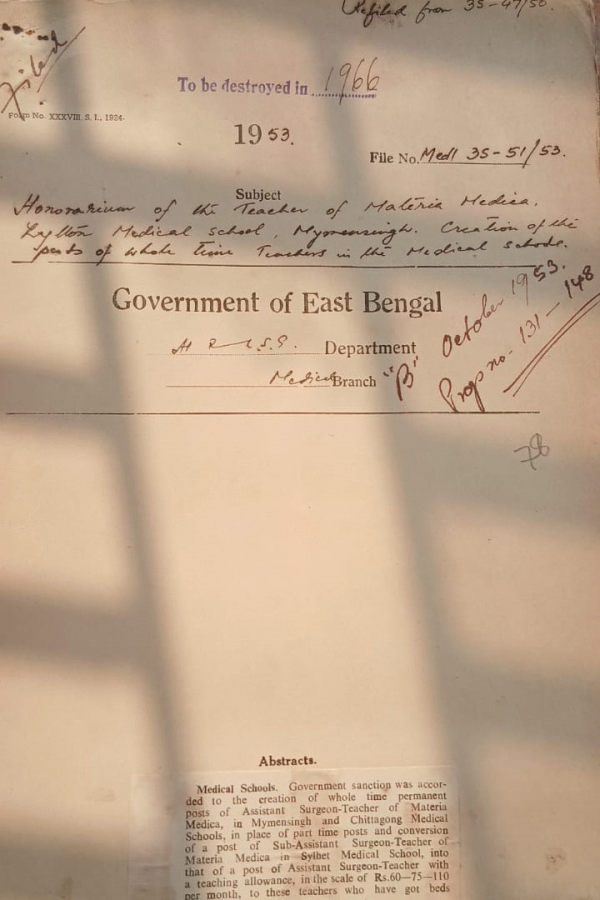 Refiled from 35-47/50.
Filed
To be destroyed in 1966
Form No. XXXVIII. S. I., 1924.
1953.
File No. Medl 35-51/53.
Subject
Honorarium of the Teacher of Materia Medica,
Lytton Medical School, Mymensingh. Creation of the
posts of whole time Teachers in the Medical Schools.
Government of East Bengal
Department
Medical Branch "B"
October 1953.
Progs no. 131-148
Abstracts.
Medical Schools. Government sanction was accor-
ded to the creation of whole time permanent
posts of Assistant Surgeon-Teacher of Materia
Medica, in Mymensingh and Chittagong Medical
Schools, in place of part time posts and conversion
of a post of Sub-Assistant Surgeon-Teacher of
Materia Medica in Sylhet Medical School, into
that of a post of Assistant Surgeon-Teacher with
a teaching allowance, in the scale of Rs.60—75—110
per month, to these teachers who have got beds